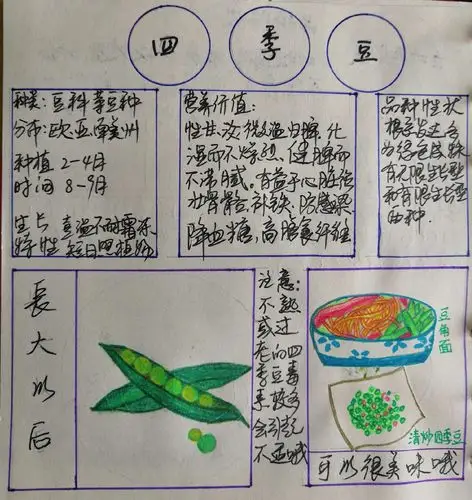 四 季 豆
种类：豆科菜豆种
分布：欧亚南美洲
种植 2-4月
时间 8-9月
生长 喜温不耐霜冻
特性 短日照植物
营养价值：
性甘、淡、微温归脾、化
湿而不燥烈，健脾而
不滞腻，有益于心脏、
壮骨骼、补铁、防感染
降血糖，高膳食纤维
品种性状
根系发达
为绿色
有无限生长型
和有限生长型
由种.
长
大
以
后
注意：
不熟
或过
老的四
季豆毒
素较多
会引起
不适哦
豆角
面
清炒四季豆
可以很美味哦